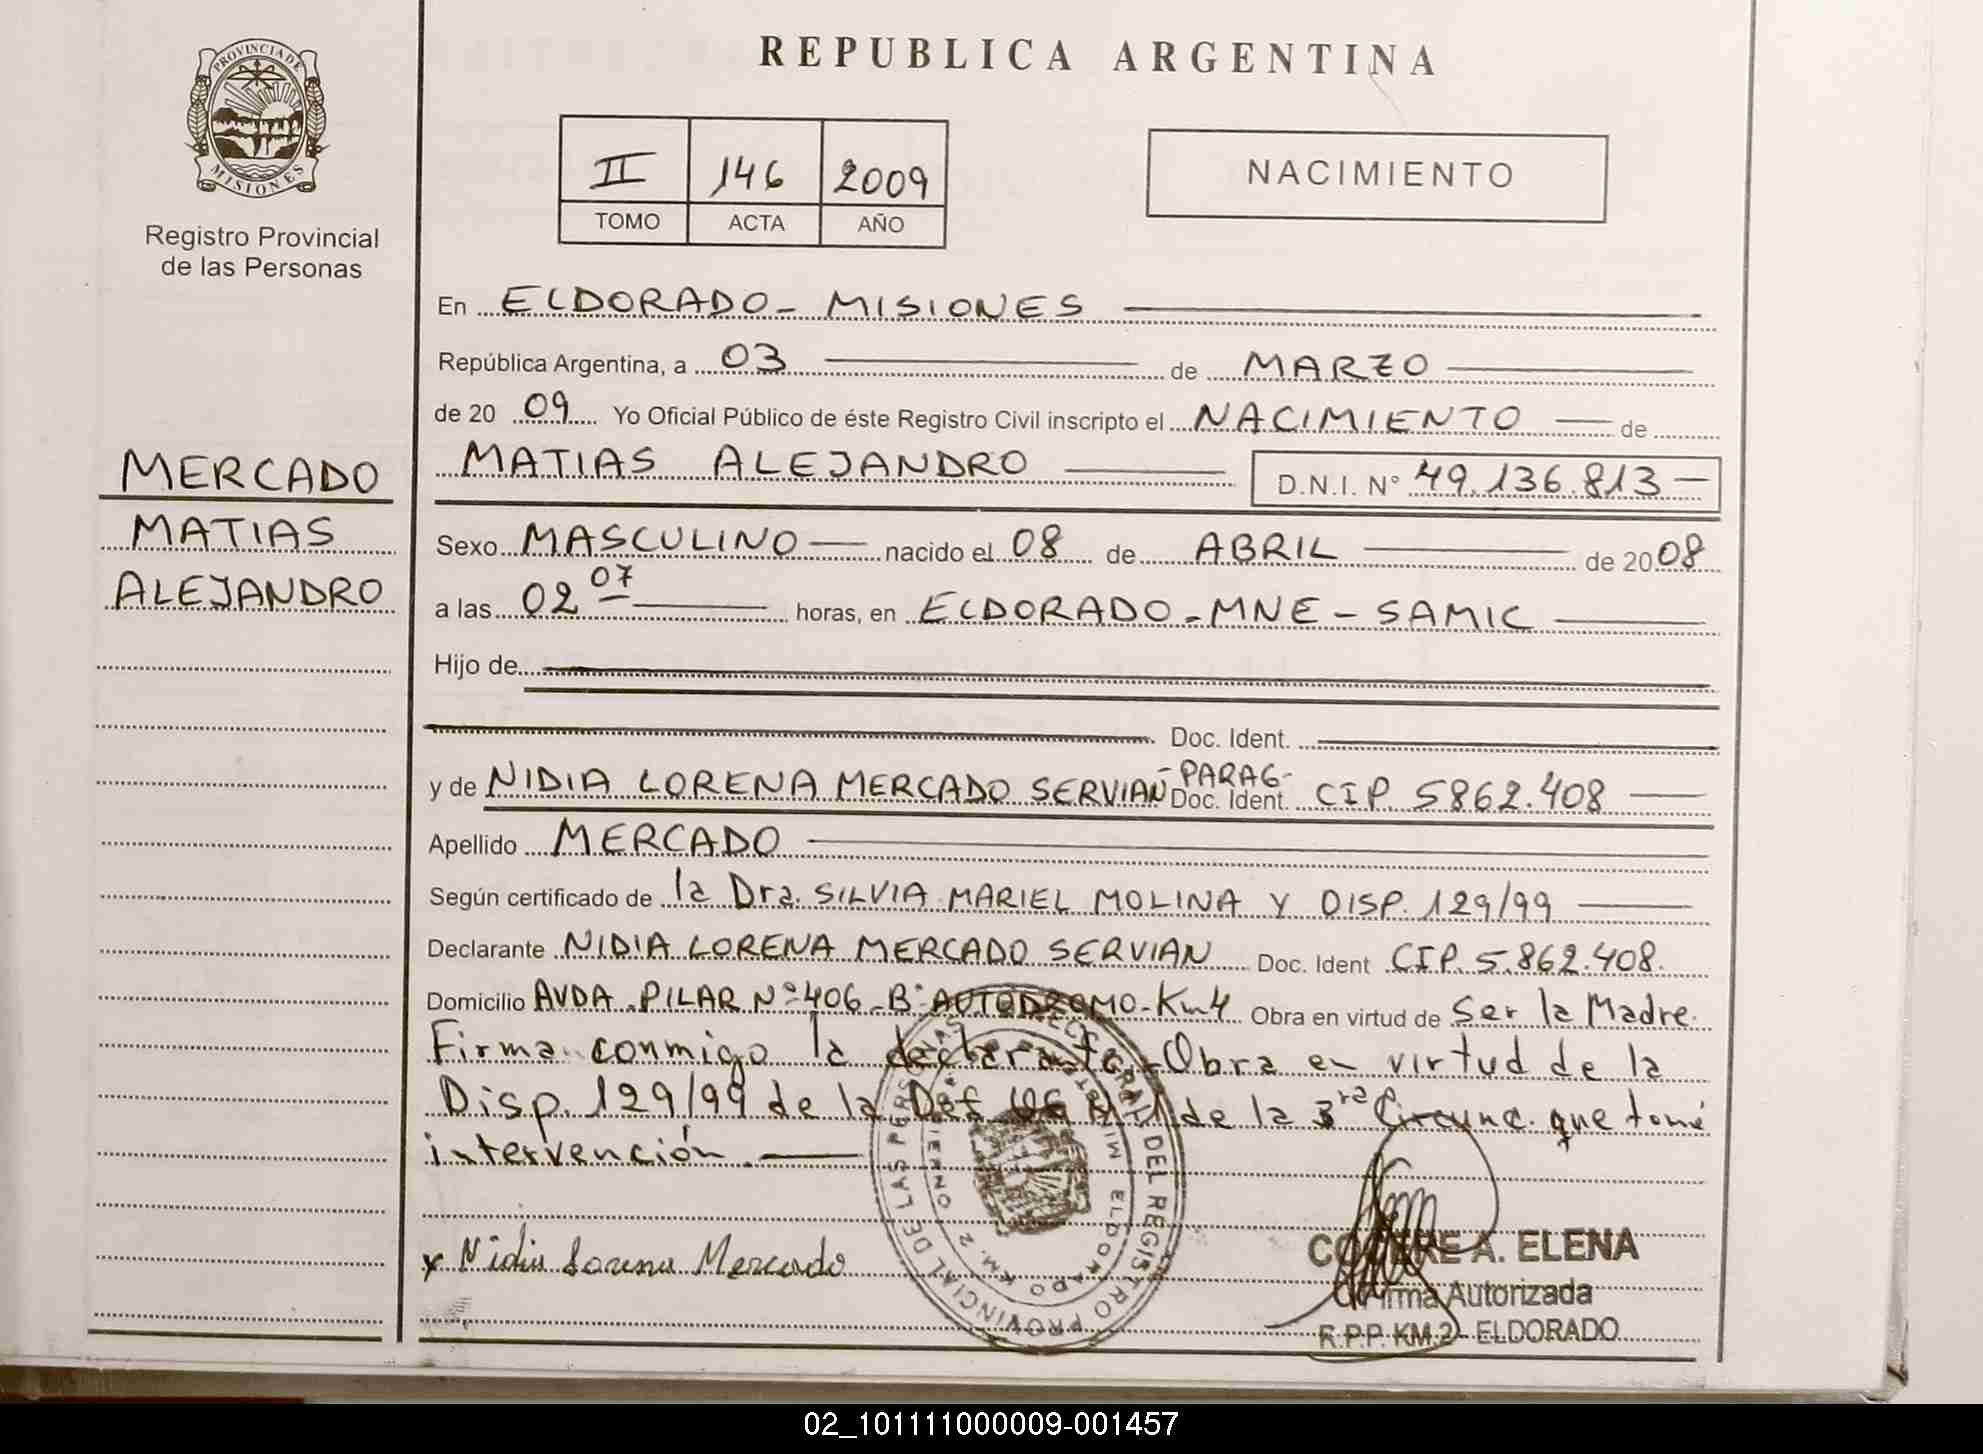 PROVINCIA DE
MISIONES
Registro Provincial
de las Personas
MERCADO
MATIAS
ALEJANDRO
REPUBLICA ARGENTINA
II 146 2009
TOMO ACTA AÑO
NACIMIENTO
En ELDORADO - MISIONES
República Argentina, a 03 de MARZO
de 20 09 Yo Oficial Público de éste Registro Civil inscripto el NACIMIENTO de
MATIAS ALEJANDRO D.N.I. N° 49.136.813
Sexo MASCULINO nacido el 08 de ABRIL de 2008
a las 02 07 horas, en ELDORADO - MNE - SAMIC
Hijo de
Doc. Ident.
y de NIDIA LORENA MERCADO SERVIAN - PARAG - Doc. Ident. CIP 5862.408
Apellido MERCADO
Según certificado de la Dra. SILVIA MARIEL MOLINA Y DISP. 129/99
Declarante NIDIA LORENA MERCADO SERVIAN Doc. Ident CIP. 5.862.408.
Domicilio AVDA. PILAR N° 406 - B° AUTODROMO - Km 4 Obra en virtud de Ser la Madre.
Firma conmigo la declarante. Obra en virtud de la
Disp. 129/99 de la Def. de la 3ra Circunc. que tomó
intervención.
x Nidia Lorena Mercado
A. ELENA
Firma Autorizada
R.P.P. KM.2 - ELDORADO
DEL REGISTRO PROVINCIAL DE LAS PERSONAS
ELDORADO KM. 2
02_101111000009-001457